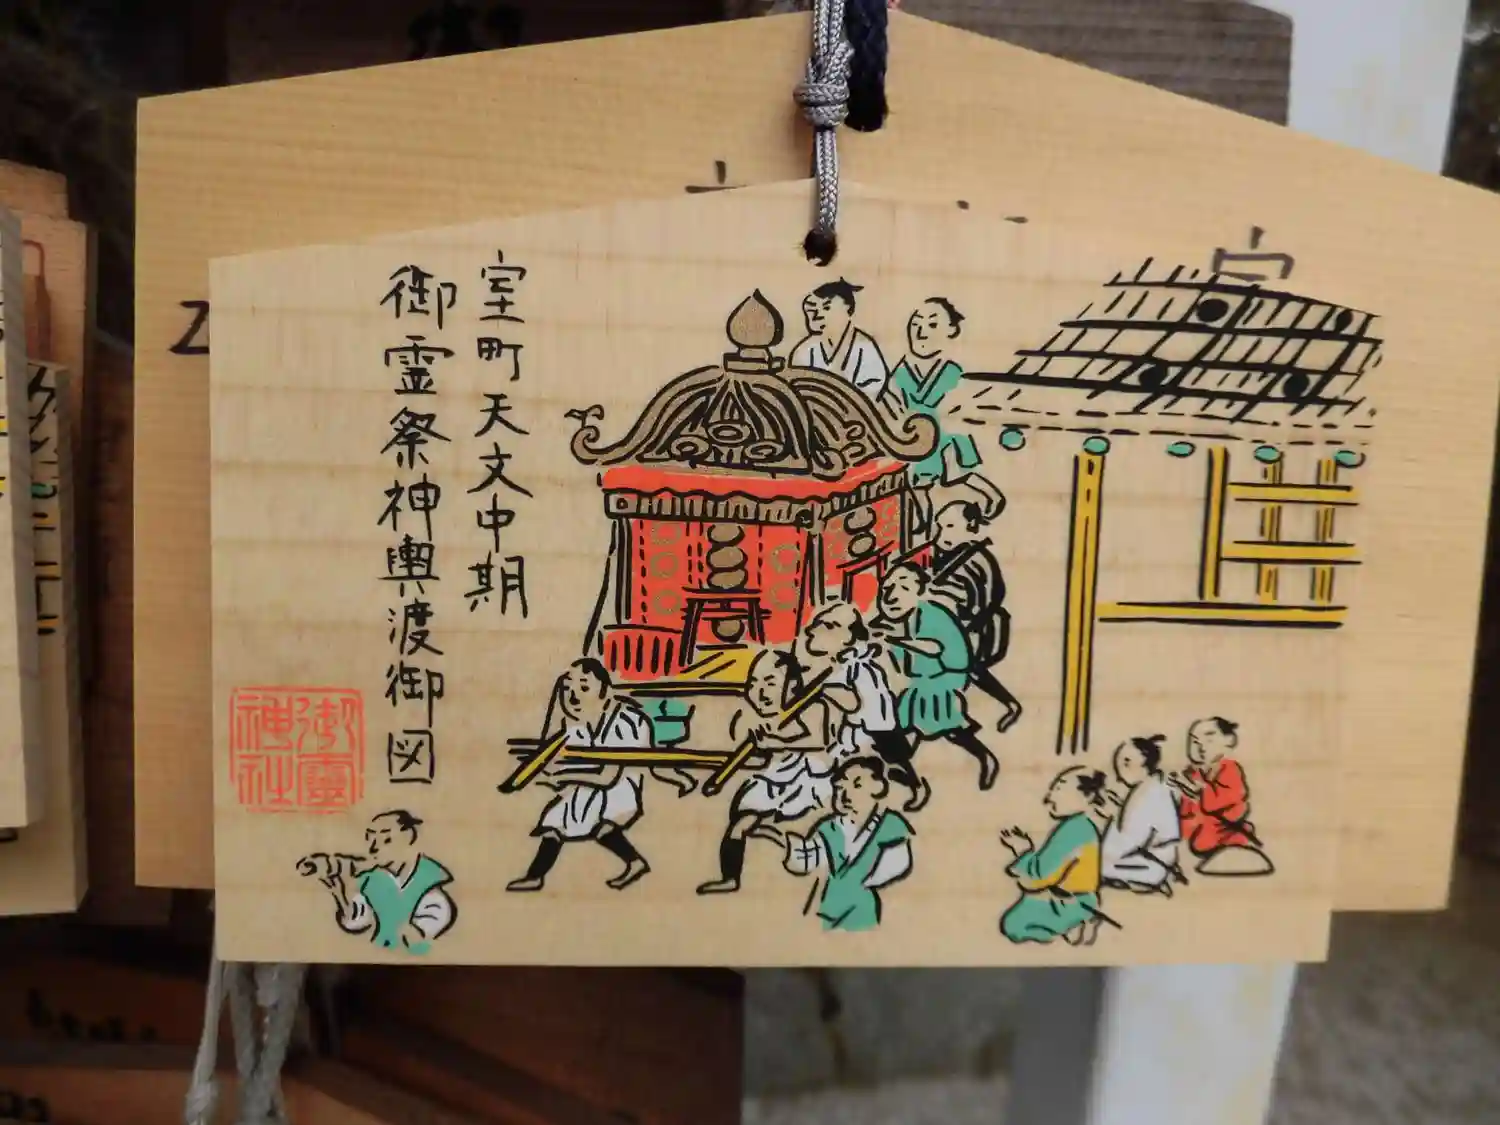 室町天文中期
御霊祭神輿渡御図
御靈
神社